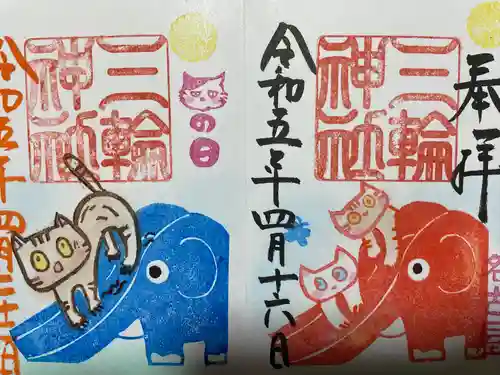 奉拝
三輪
神社
令和五年四月十六日
の日
三輪
神社
令和五年四月